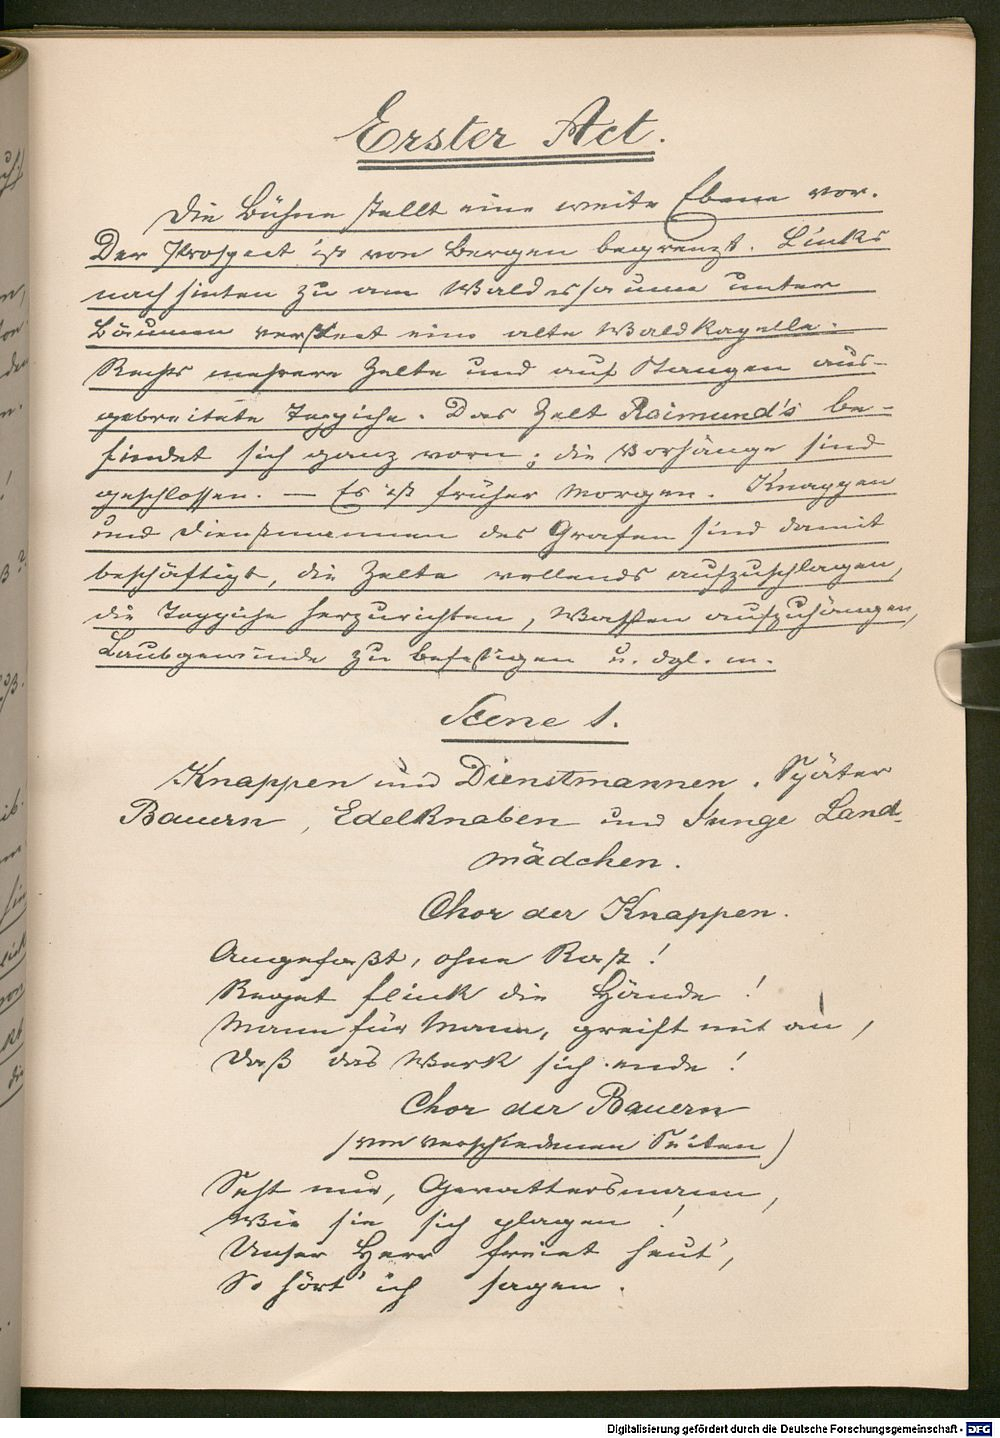 Erster Act.
Die Bühne stellt eine weite Ebene vor.
Der Prospect ist von Bergen begrenzt. Links
nach hinten zu am Waldessaume unter
Bäumen versteckt eine alte Waldkapelle.
Rechts mehrere Zelte und auf Stangen aus-
gebreitete Teppiche. Das Zelt Raimund's be-
findet sich ganz vorn; die Vorhänge sind
geschlossen. — Es ist früher Morgen. Knappen
und Dienstmannen des Grafen sind damit
beschäftigt, die Zelte vollends aufzuschlagen,
die Teppiche herzurichten, Waffen aufzuhängen,
Laubgewinde zu befestigen u. dgl. m.
Scene 1.
Knappen und Dienstmannen. Später
Bauern, Edelknaben und junge Land-
mädchen.
Chor der Knappen.
Angefaßt, ohne Rast!
Reget flink die Hände!
Mann für Mann, greift mit an,
Daß das Werk sich ende!
Chor der Bauern
(von verschiedenen Seiten)
Seht nur, Gevattersmann,
Wie sie sich plagen!
Unser Herr freiet heut',
So hört' ich sagen.
Digitalisierung gefördert durch die Deutsche Forschungsgemeinschaft - DFG